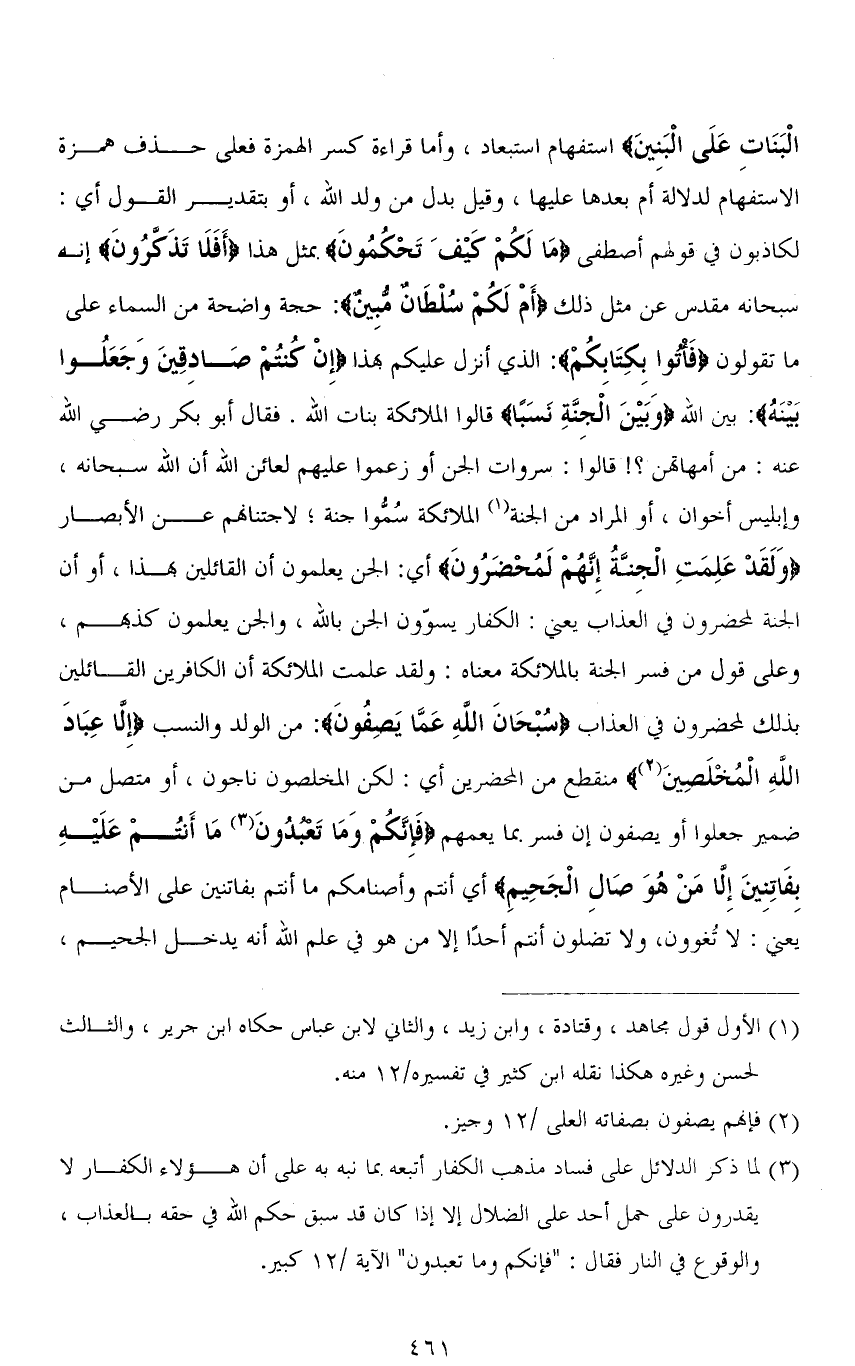 الْبَنَاتِ عَلَى الْبَنِينَ﴾ استفهام استبعاد ، وأما قراءة كسر الهمزة فعلى حـــذف همـــزة
الاستفهام لدلالة أم بعدها عليها ، وقيل بدل من ولد الله ، أو بتقديـــر القـــول أي :
لكاذبون في قولهم أصطفى ﴿مَا لَكُمْ كَيْفَ تَحْكُمُونَ﴾ بمثل هذا ﴿أَفَلَا تَذَكَّرُونَ﴾ إنـه
سبحانه مقدس عن مثل ذلك ﴿أَمْ لَكُمْ سُلْطَانٌ مُّبِينٌ﴾: حجة واضحة من السماء على
ما تقولون ﴿فَأْتُوا بِكِتَابِكُمْ﴾: الذي أنزل عليكم هذا ﴿إِنْ كُنتُمْ صَـــادِقِينَ وَجَعَلُـــوا
بَيْنَهُ﴾: بين الله ﴿وَبَيْنَ الْجِنَّةِ نَسَبًا﴾ قالوا الملائكة بنات الله . فقال أبو بكر رضـــي الله
عنه : من أمهاتهن ؟! قالوا : سروات الجن أو زعموا عليهم لعائن الله أن الله سـبحانه ،
وإبليس أخوان ، أو المراد من الجنة(١) الملائكة سُمُّوا جنة ؛ لاجتنانهم عـــن الأبصـــار
﴿وَلَقَدْ عَلِمَتِ الْجِنَّةُ إِنَّهُمْ لَمُحْضَرُونَ﴾ أي: الجن يعلمون أن القائلين هـــذا ، أو أن
الجنة لمحضرون في العذاب يعني : الكفار يسوّون الجن بالله ، والجن يعلمون كذبهـــم ،
وعلى قول من فسر الجنة بالملائكة معناه : ولقد علمت الملائكة أن الكافرين القـــائلين
بذلك لمحضرون في العذاب ﴿سُبْحَانَ اللَّهِ عَمَّا يَصِفُونَ﴾: من الولد والنسب ﴿إِلَّا عِبَادَ
اللَّهِ الْمُخْلَصِينَ(٢)﴾ منقطع من المحضرين أي : لكن المخلصون ناجون ، أو متصل مـن
ضمير جعلوا أو يصفون إن فسر بما يعمهم ﴿فَإِنَّكُمْ وَمَا تَعْبُدُونَ(٣) مَا أَنتُـــمْ عَلَيْـــهِ
بِفَاتِنِينَ إِلَّا مَنْ هُوَ صَالِ الْجَحِيمِ﴾ أي أنتم وأصنامكم ما أنتم بفاتنين على الأصنـــام
يعني : لا تُغوون، ولا تضلون أنتم أحدًا إلا من هو في علم الله أنه يدخـــل الجحيـــم ،
(١) الأول قول مجاهد ، وقتادة ، وابن زيد ، والثاني لابن عباس حكاه ابن جرير ، والثـــالث
لحسن وغيره هكذا نقله ابن كثير في تفسيره/١٢ منه.
(٢) فإنهم يصفون بصفاته العلى /١٢ وجيز.
(٣) لما ذكر الدلائل على فساد مذهب الكفار أتبعه بما نبه به على أن هـــؤلاء الكفـــار لا
يقدرون على حمل أحد على الضلال إلا إذا كان قد سبق حكم الله في حقه بـالعذاب ،
والوقوع في النار فقال : "فإنكم وما تعبدون" الآية /١٢ كبير.
٤٦١